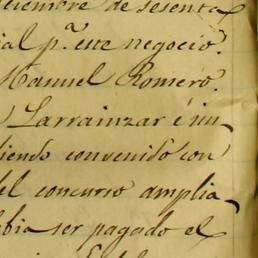 iciembre de sesenta
ial p.ª este negocio.
Manuel Romero.
Larrainzar é in-
diendo convenido con
del concurso amplia-
bia ser pagado el